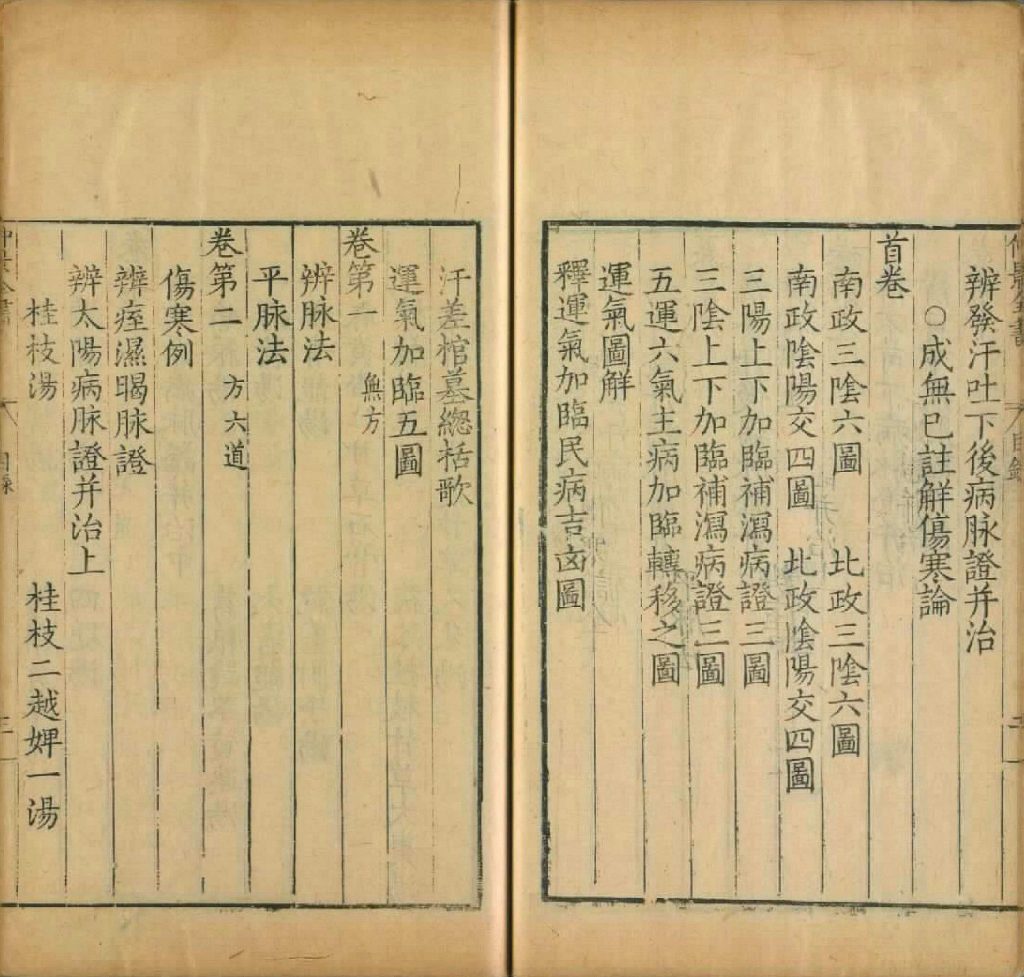 辨發汗吐下後病脉證并治
○成無已註解傷寒論
首卷
南政三陰六圖 北政三陰六圖
南政陰陽交四圖 北政陰陽交四圖
三陽上下加臨補瀉病證三圖
三陰上下加臨補瀉病證三圖
五運六氣主病加臨轉移之圖
運氣圖解
釋運氣加臨民病吉凶圖
汗差棺墓總括歌
運氣加臨五圖
卷第一 無方
辨脉法
平脉法
卷第二 方六道
傷寒例
辨痓濕暍脉證
辨太陽病脉證并治上
桂枝湯 桂枝二越婢一湯